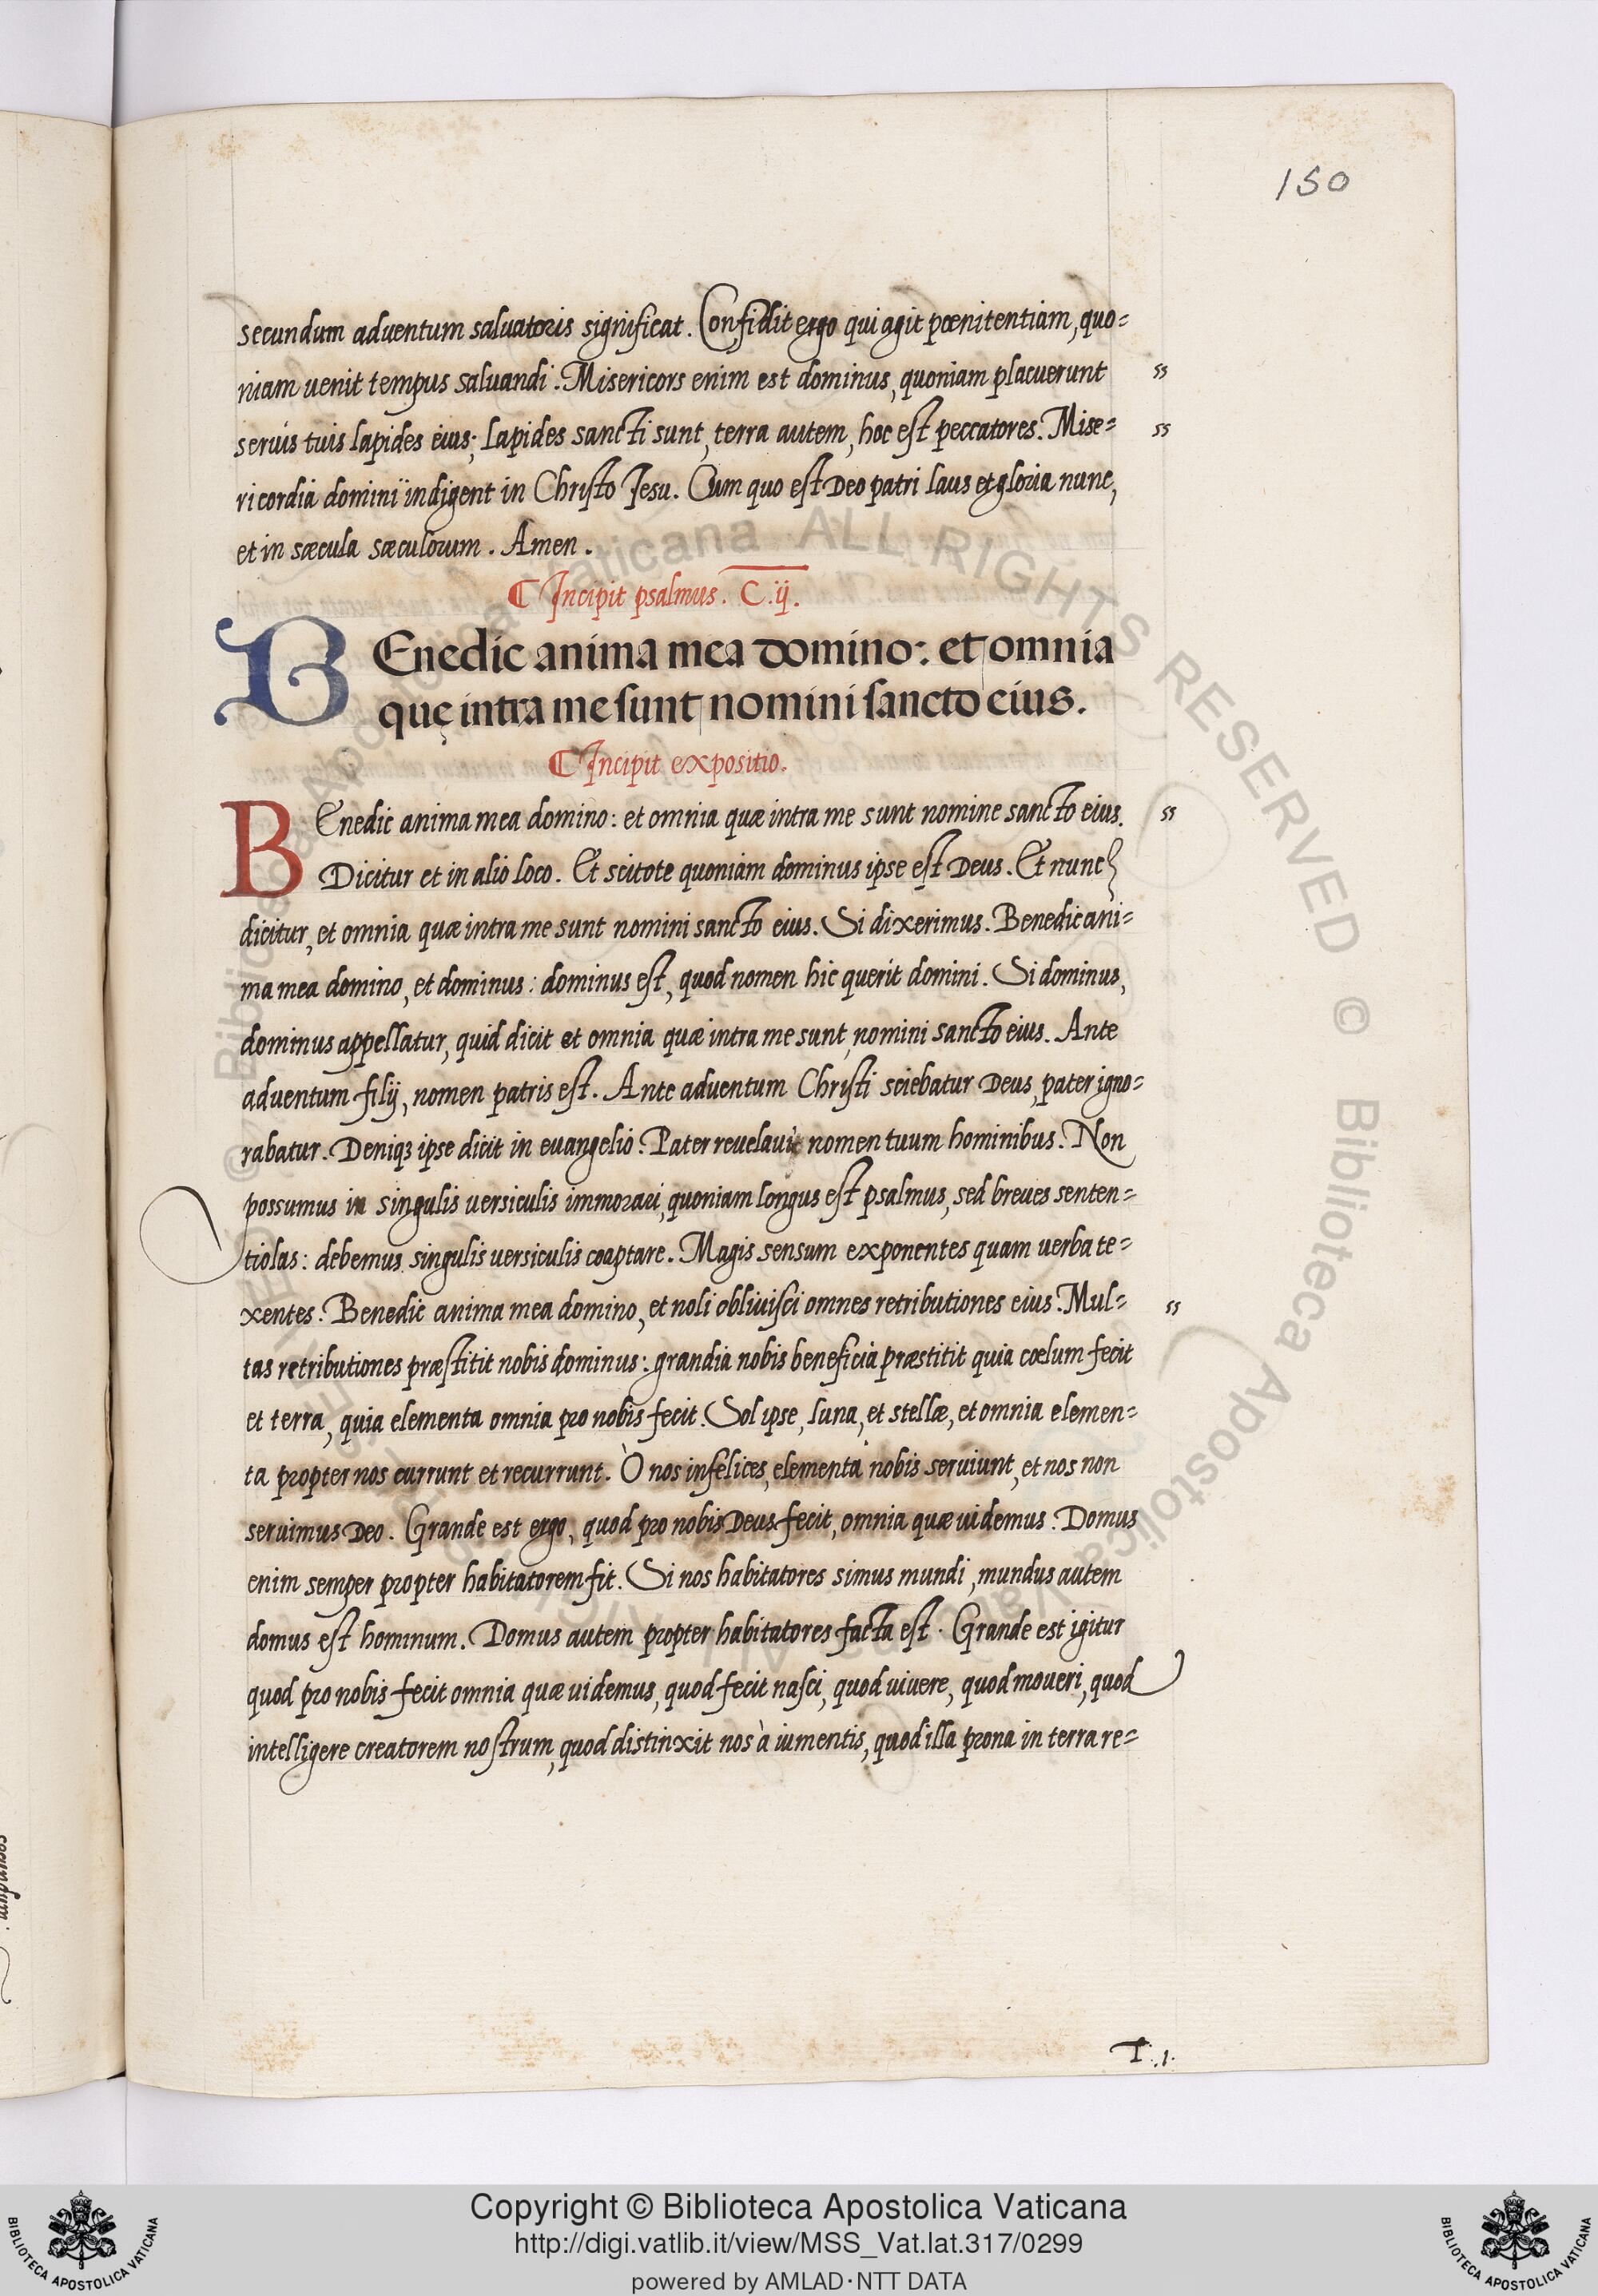 150
secundum aduentum saluatoris significat. Confidit ergo qui agit pœnitentiam, quo=
niam uenit tempus saluandi. Misericors enim est dominus, quoniam placuerunt ss
seruis tuis lapides eius; Lapides sancti sunt, terra autem, hoc est peccatores. Mise= ss
ricordia domini indigent in Christo Jesu. Cum quo est Deo patri laus et gloria nunc,
et in sæcula sæculorum. Amen.
¶ Incipit psalmus. C.ij.
BEnedic anima mea domino: et omnia
quę intra me sunt nomini sancto eius.
¶ Incipit expositio.
BEnedic anima mea domino: et omnia quæ intra me sunt nomine sancto eius. ss
Dicitur et in alio loco. Et scitote quoniam dominus ipse est Deus. Et nunc
dicitur, et omnia quæ intra me sunt nomini sancto eius. Si dixerimus. Benedic ani=
ma mea domino, et dominus: dominus est, quod nomen hic querit domini. Si dominus,
dominus appellatur, quid dicit et omnia quæ intra me sunt, nomini sancto eius. Ante
aduentum filij, nomen patris est. Ante aduentum Christi sciebatur Deus, pater igno=
rabatur. Deniqꝫ ipse dicit in euangelio. Pater reuelaui nomen tuum hominibus. Non
possumus in singulis uersiculis immorari, quoniam longus est psalmus, sed breues senten=
tiolas: debemus singulis uersiculis coaptare. Magis sensum exponentes quam uerba te=
xentes. Benedic anima mea domino, et noli obliuisci omnes retributiones eius. Mul= ss
tas retributiones præstitit nobis dominus: grandia nobis beneficia præstitit quia cœlum fecit
et terra, quia elementa omnia pro nobis fecit. Sol ipse, luna, et stellæ, et omnia elemen=
ta propter nos currunt et recurrunt. Ò nos infelices, elementa nobis seruiunt, et nos non
seruimus Deo. Grande est ergo, quod pro nobis Deus fecit, omnia quæ uidemus. Domus
enim semper propter habitatorem fit. Si nos habitatores simus mundi, mundus autem
domus est hominum. Domus autem propter habitatores facta est. Grande est igitur
quod pro nobis fecit omnia quæ uidemus, quod fecit nasci, quod uiuere, quod moueri, quod
intelligere creatorem nostrum, quod distinxit nos à iumentis, quod illa prona in terra re=
T.1.
© Biblioteca Apostolica Vaticana ALL RIGHTS RESERVED © Biblioteca Apostolica Vaticana
Copyright © Biblioteca Apostolica Vaticana
http://digi.vatlib.it/view/MSS_Vat.lat.317/0299
powered by AMLAD·NTT DATA
BIBLIOTECA APOSTOLICA VATICANA
BIBLIOTECA APOSTOLICA VATICANA